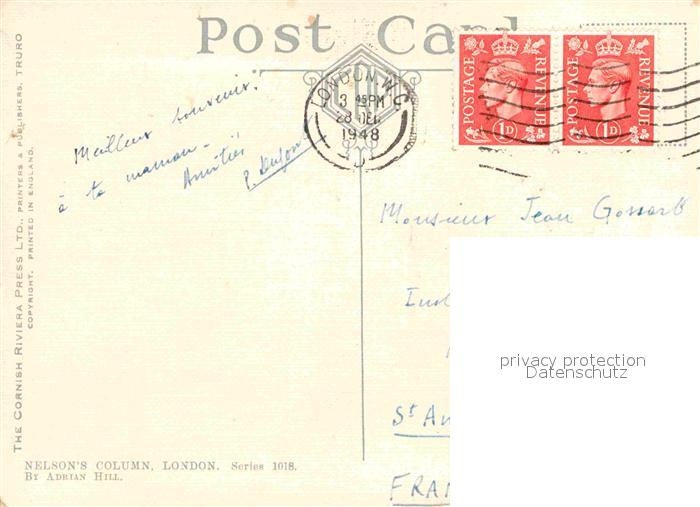 Post Card
LONDON. W.C.
3 45 PM
28 DEC
1948
POSTAGE REVENUE
1D
POSTAGE REVENUE
1D
Meilleur souvenir.
à ta maman -
Amitiés
Monsieur Jean
privacy protection
Datenschutz
St
NELSON'S COLUMN, LONDON. Series 1018.
BY ADRIAN HILL.
THE CORNISH RIVIERA PRESS LTD., PRINTERS & PUBLISHERS, TRURO
COPYRIGHT. PRINTED IN ENGLAND.